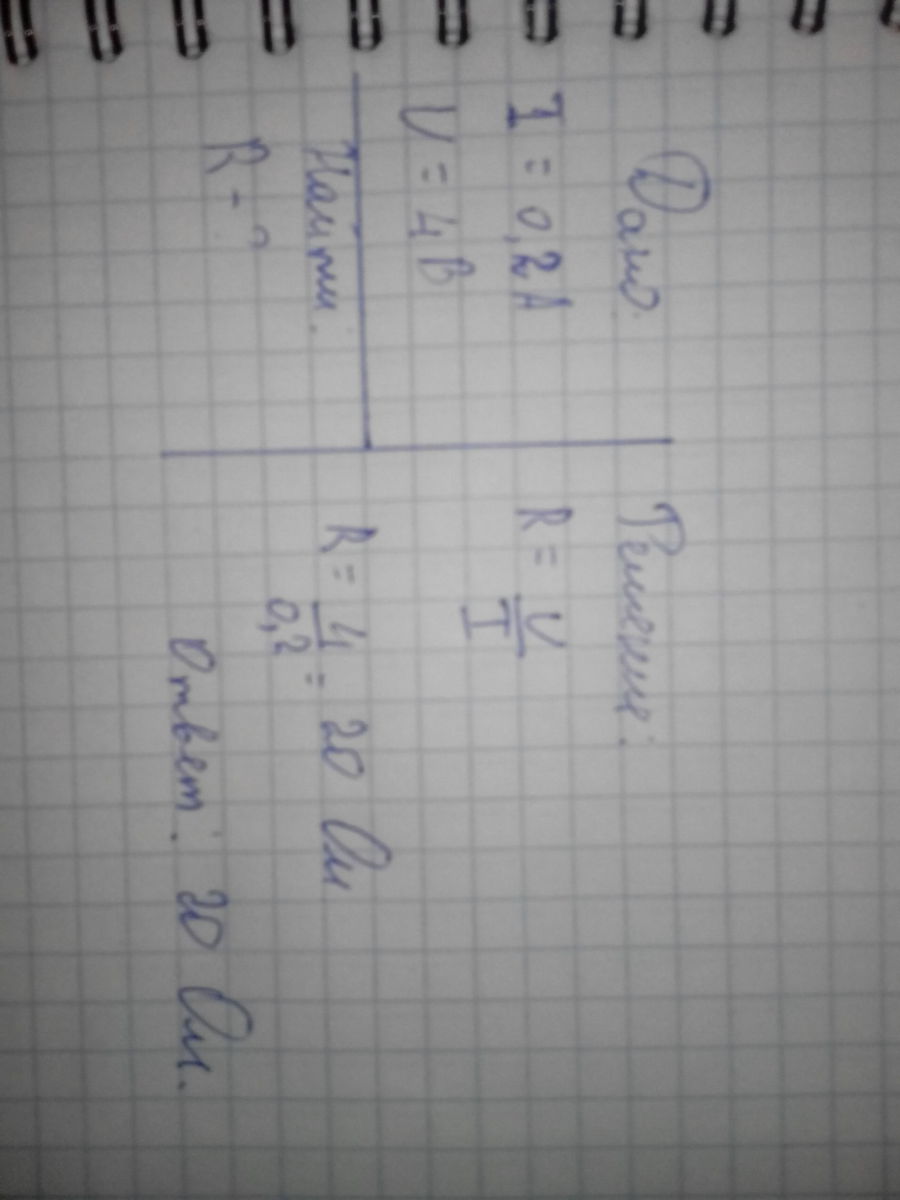 Дано:
I = 0,2 А
U = 4 В
Найти:
R - ?
Решение:
R = U/I
R = 4/0,2 = 20 Ом
Ответ: 20 Ом.